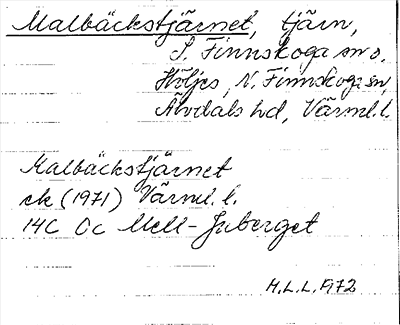 Malbäckstjärnet, tjärn,
S. Finnskoga sn o.
Höljes, N. Finnskoga sn,
Älvdals hd, Värml.l.
Malbäckstjärnet
ek (1971) Värml. l.
14C 0c Mell-Juberget
H.L.L. Fi72